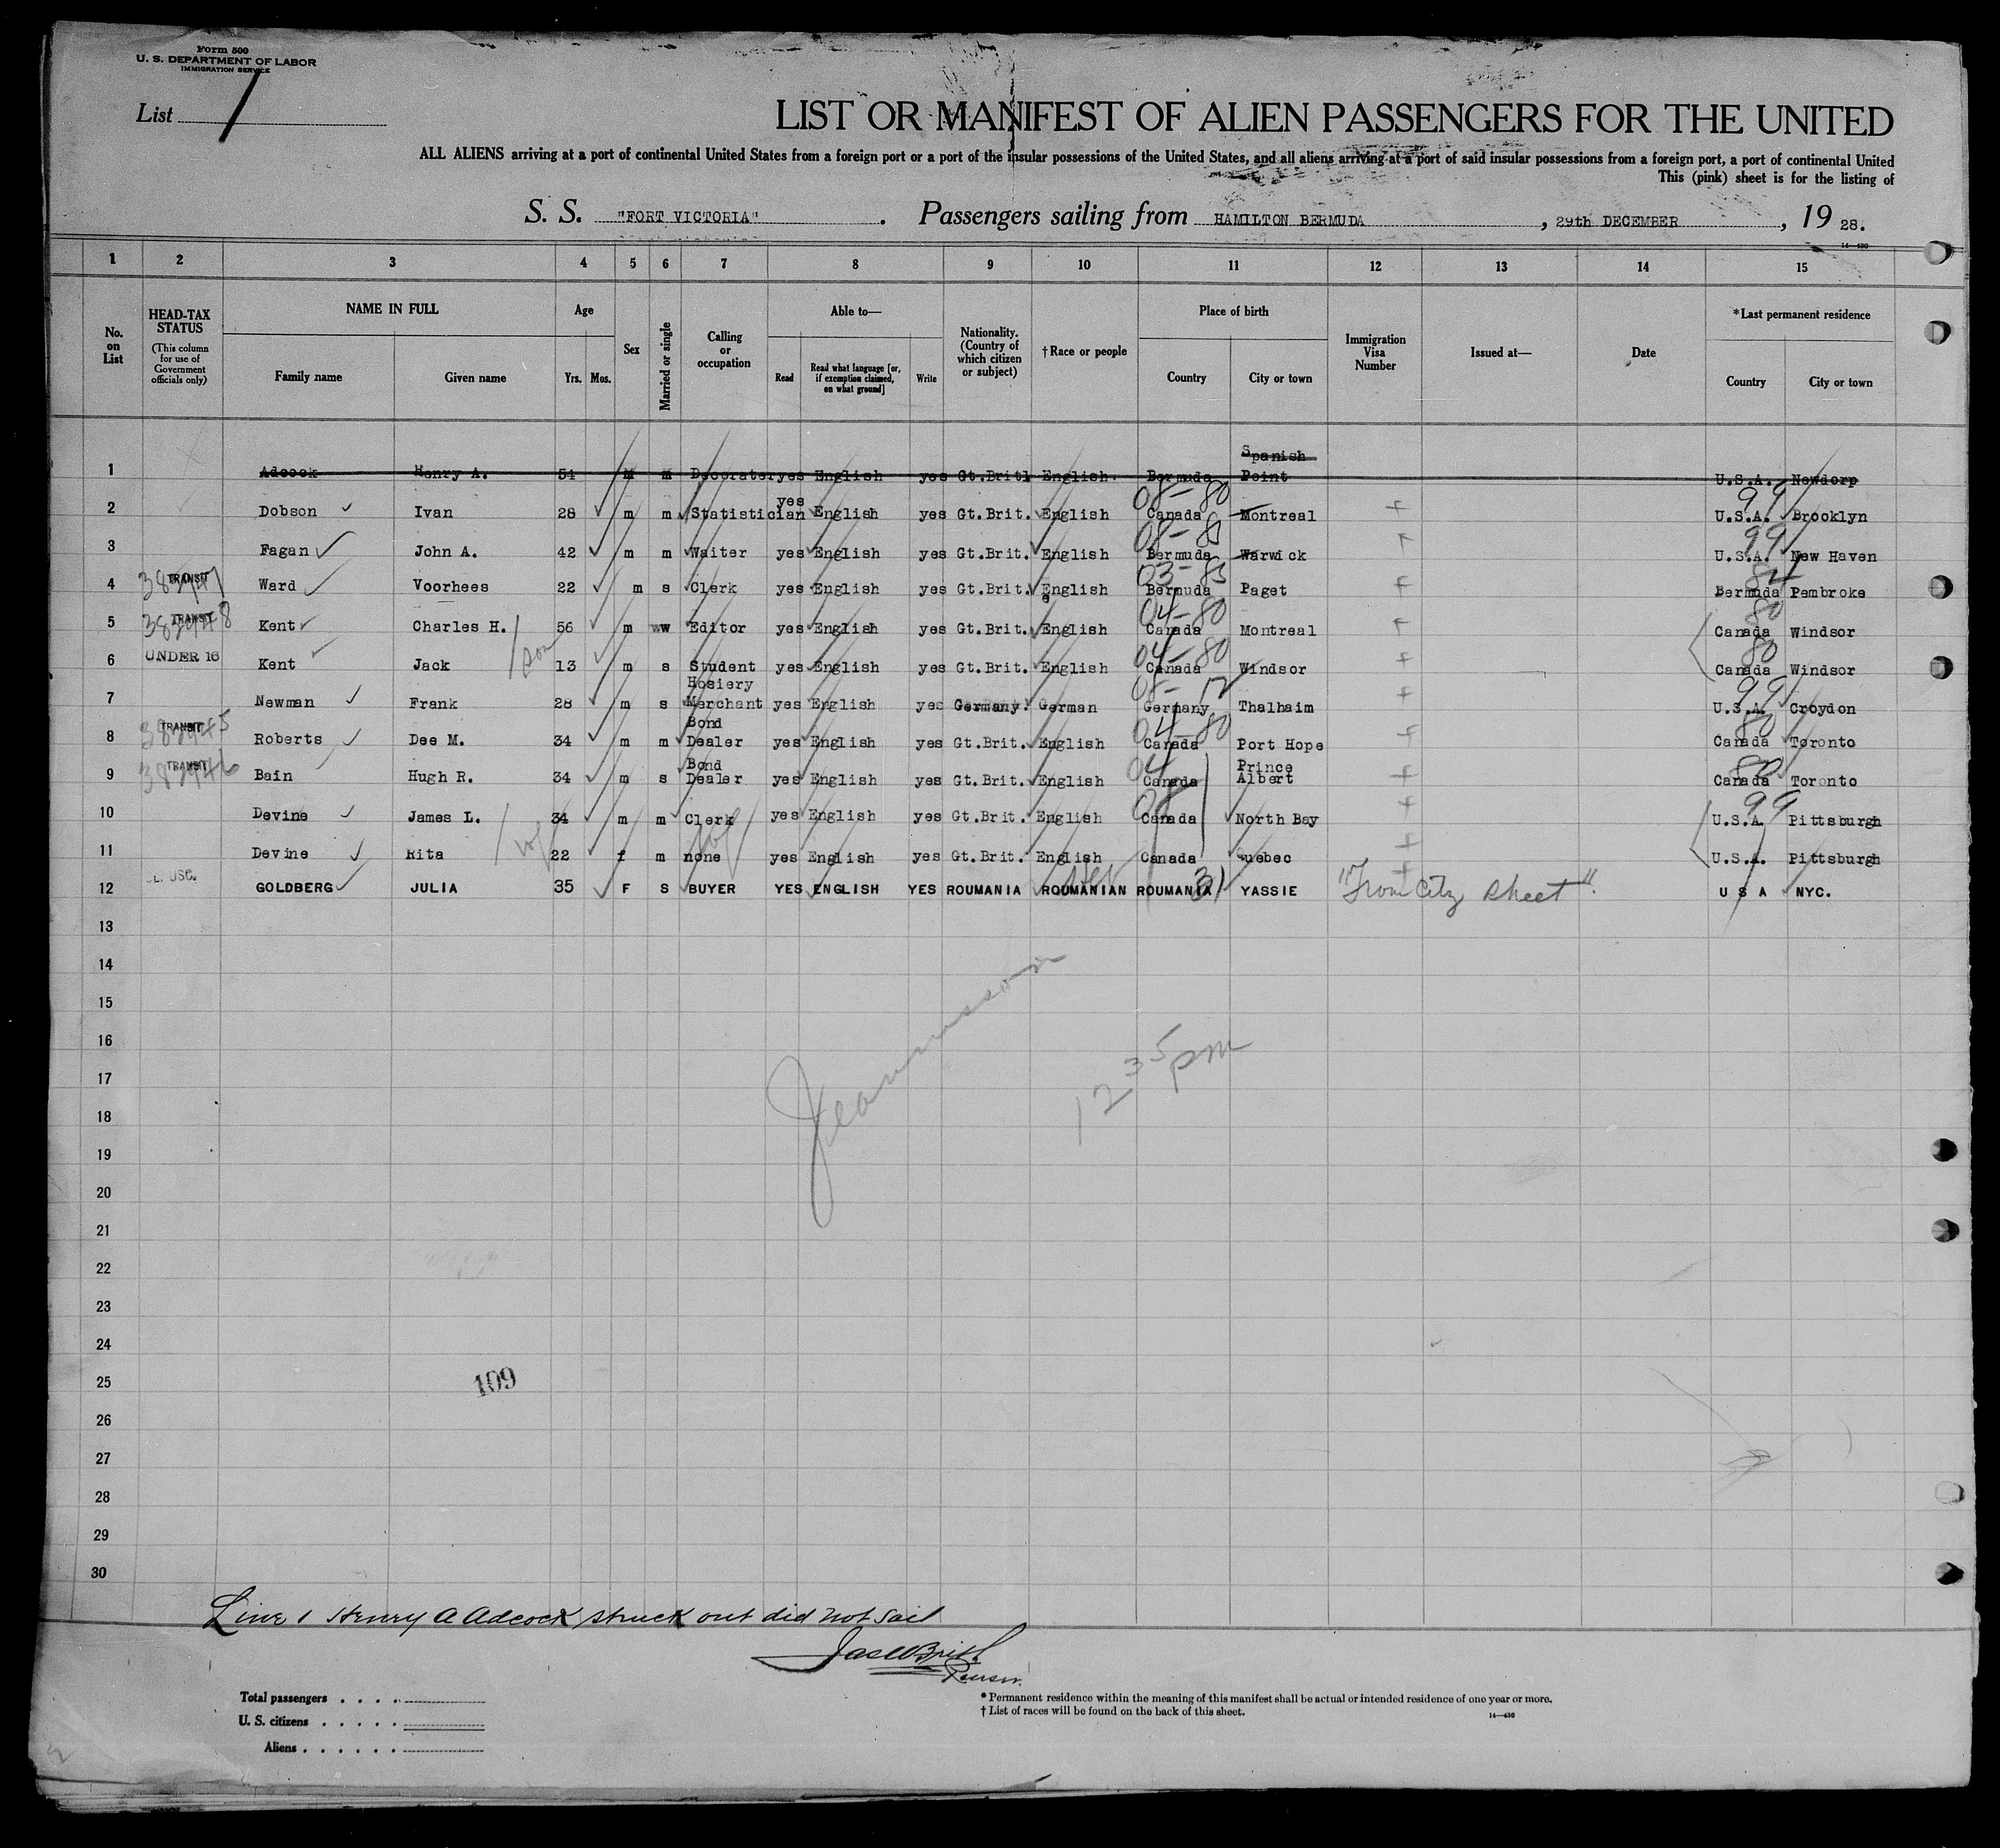 Form 500
U. S. DEPARTMENT OF LABOR
IMMIGRATION SERVICE
List 1
LIST OR MANIFEST OF ALIEN PASSENGERS FOR THE UNITED
ALL ALIENS arriving at a port of continental United States from a foreign port or a port of the insular possessions of the United States, and all aliens arriving at a port of said insular possessions from a foreign port, a port of continental United
This (pink) sheet is for the listing of
S. S. "FORT VICTORIA" . Passengers sailing from HAMILTON BERMUDA , 29th DECEMBER , 19 28.
14—430
1 2 3 4 5 6 7 8 9 10 11 12 13 14 15
No. on List
HEAD-TAX STATUS (This column for use of Government officials only)
NAME IN FULL
Family name Given name
Age
Yrs. Mos.
Sex
Married or single
Calling or occupation
Able to—
Read Read what language [or, if exemption claimed, on what ground] Write
Nationality. (Country of which citizen or subject)
†Race or people
Place of birth
Country City or town
Immigration Visa Number
Issued at—
Date
*Last permanent residence
Country City or town
1 Adcock Henry A. 54 M m Decorater yes English yes Gt.Brit English. Bermuda Spanish Point U.S.A. Newdorp
2 Dobson Ivan 28 m m Statistician yes English yes Gt.Brit. English 08-80 Canada Montreal 99 U.S.A. Brooklyn
3 Fagan John A. 42 m m Waiter yes English yes Gt.Brit. English Bermuda Warwick 99 U.S.A. New Haven
4 TRANSIT 383947 Ward Voorhees 22 m s Clerk yes English yes Gt.Brit. English 03-85 Bermuda Paget Bermuda Pembroke
5 TRANSIT 383948 Kent Charles H. 56 m w Editor yes English yes Gt.Brit. English 04-80 Canada Montreal 80 Canada Windsor
6 UNDER 16 Kent Jack son 13 m s Student yes English yes Gt.Brit. English 04-80 Canada Windsor 80 Canada Windsor
7 Newman Frank 28 m s Hosiery Merchant yes English yes Germany. German 08-12 Germany Thalhaim 99 U.S.A. Croydon
8 TRANSIT 383945 Roberts Dee M. 34 m m Bond Dealer yes English yes Gt.Brit. English 04-80 Canada Port Hope 80 Canada Toronto
9 TRANSIT 383946 Bain Hugh R. 34 m s Bond Dealer yes English yes Gt.Brit. English 04 Canada Prince Albert 80 Canada Toronto
10 Devine James L. 34 m m Clerk yes English yes Gt.Brit. English 08 Canada North Bay 99 U.S.A. Pittsburgh
11 Devine Rita wf 22 f m none wf yes English yes Gt.Brit. English Canada Quebec U.S.A. Pittsburgh
12 USC. GOLDBERG JULIA 35 F S BUYER YES ENGLISH YES ROUMANIA ROUMANIAN ROUMANIA 31 YASSIE "From City Sheet" U S A NYC.
13
14
15
16
17
18
19
20
21
22
23
24
25
26
27
28
29
30
12 35 pm
109
Line 1 Henry A Adcock struck out did not sail
Purser.
Total passengers
U. S. citizens
Aliens
* Permanent residence within the meaning of this manifest shall be actual or intended residence of one year or more.
† List of races will be found on the back of this sheet.
14—430